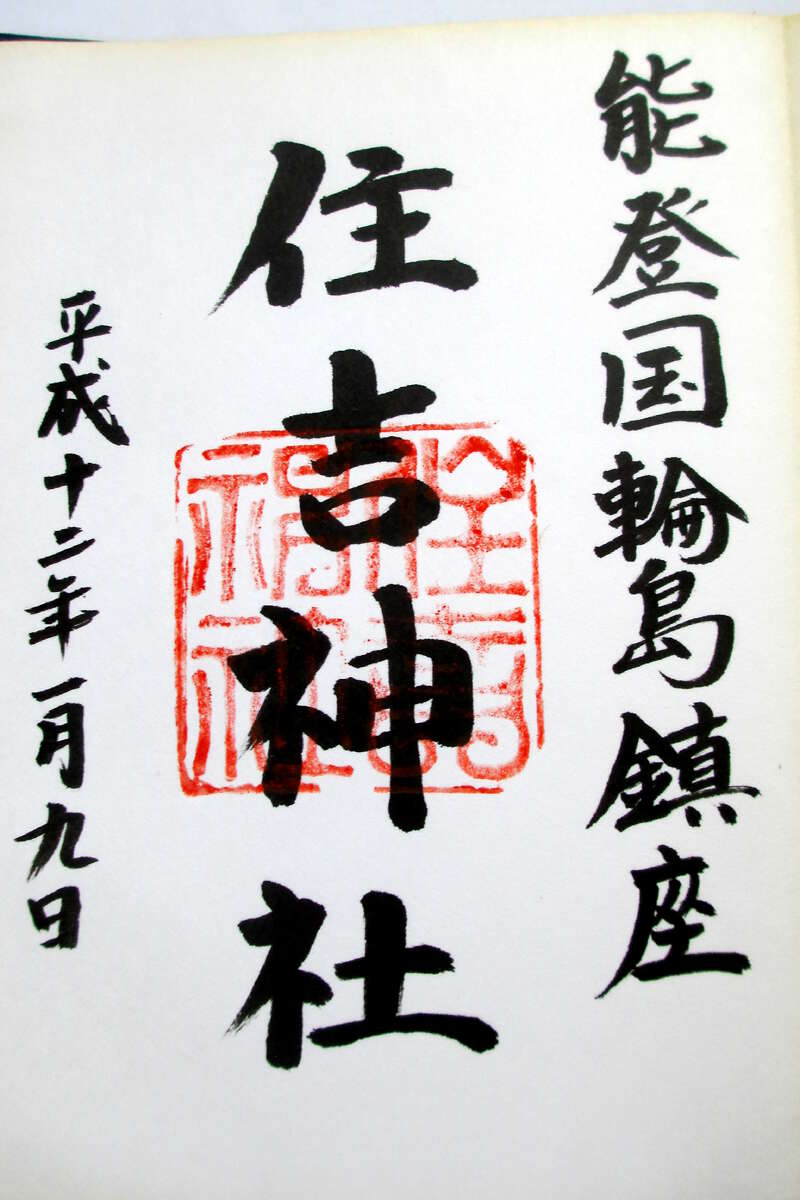 能登国輪島鎮座
住吉神社
平成十二年一月九日